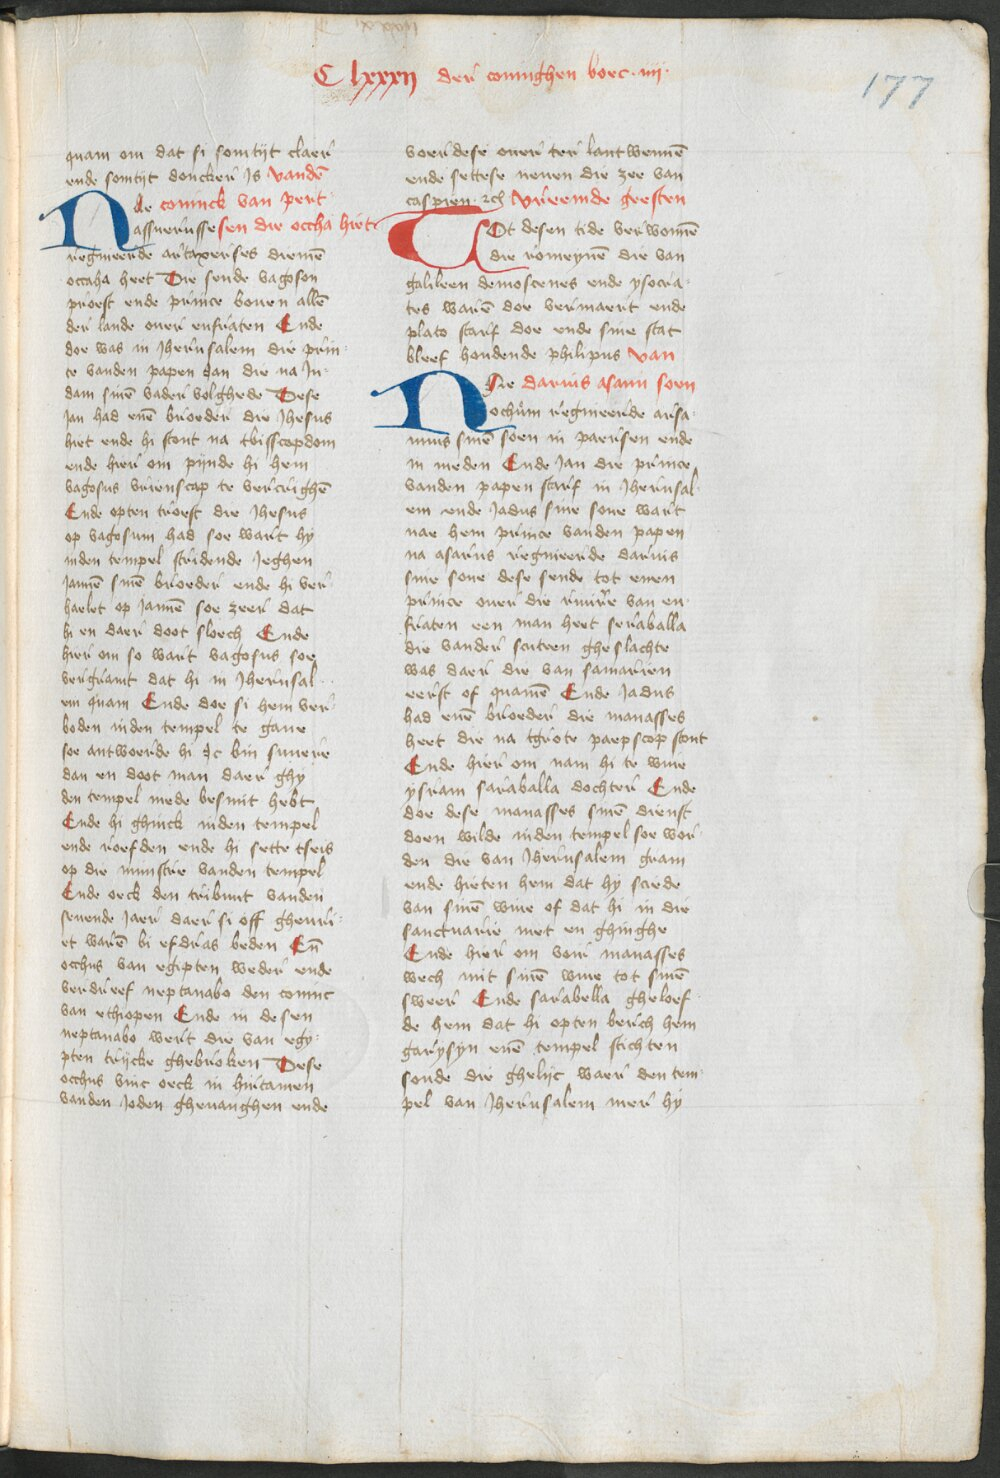 C lxxxij der coninghen boec · iiij ·
177
quam om dat si somtijt claer
ende somtijt doncker is vanden̄
Nde coninck van pert
assuerusse sen die occha hiet
regneerde artaxerses diemen̄
occaha heet Die sende vagoson
proest ende prince bouen allen̄
der lande ouer eufraten Ende
doe was in Jherusalem die prin-
ce vanden papen Jan die na Ju-
dam sinen̄ vader volghede Dese
Jan had enen̄ broeder die Jhesus
hiet ende hi stont na tbisscopdom
ende hier om pijnde hi hem
vagosus vrienscap te vercrighen̄
Ende opten troest die Jhesus
op vagosum had soe wart hy
inden tempel stridende jeghen
Jannen̄ sinen̄ broeder ende hi ver
haelet op Jannen̄ soe zeer dat
hi en daer doot sloech Ende
hier om so wart vagosus soe
vergramt dat hi in Jherusal-
em quam Ende doe si hem ver
boden inden tempel te gane
soe antwoerde hi Jc bin suuere
dan en doot man daer ghy
den tempel mede besmit hebt
Ende hi ghinck inden tempel
ende roefden ende hi sette tseis
op die ministre vanden tempel
Ende oeck den tribunt vanden
seuende jaer daer si off gheuri-
et waren̄ bi esdras beden En̄
occhus van egipten weder ende
verdreef neptanabo den coninc
van ethiopen Ende in desen
neptanabo wert die van egy-
pten trijcke ghebroken Dese
occhus vinc oeck in hirtamen
vanden Joden gheuanghen ende
voerdese ouer ter lantwennen̄
ende settese neuen die zee van
caspien · 2ch vreemde geesten
Tot desen tide verwonnen̄
die romeynen̄ die van
galileen demoscenes ende ysocra-
tes waren̄ doe vermaert ende
plato starf doe ende sine stat
bleef houdende philipus van
Die darius asami soen
Nochum regneerde arsa-
mus sinen̄ soen in paersen ende
in meden Ende Jan die prince
vanden papen starf in Jherusal-
em ende Jadus sine sone wart
nae hem prince vanden papen
na asarus regneerde darius
sine sone dese sende tot enen
prince ouer die riuire van eu-
fraten een man heet seraballa
die vander scuteen gheslachte
was daer die van samarien
eerst of quamen̄ Ende Jadus
had enen̄ broeder die manasses
heet die na tgrote paepscop stont
Ende hier om nam hi te wiue
ysram saraballa dochter Ende
doe dese manasses sinen̄ dienst
doen wilde inden tempel soe wor-
den die van Jherusalem gram
ende hieten hem dat hy sciede
van sinen̄ wiue of dat hi in die
sanctuarie niet en ghinghe
Ende hier om voir manasses
wech mit sinen̄ wiue tot sinen̄
sweer Ende sarabella gheloef-
de hem dat hi opten berch hem
garysyn enen̄ tempel stichten
soude die ghelijc waer den tem-
pel van Jherusalem mer hy